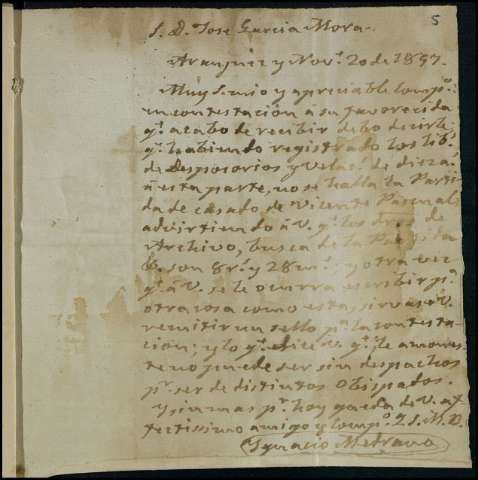 5
S. D. Jose Garcia Mora.
Aranjuez y Nov.e 20 de 1857.
Muy S. mio y apreciable comp.o:
en contestación á su favorecida
q.e acabo de recibir debo decirle
q.e habiendo registrado los lib.s
de desposorios y Velac.s de diez a.s
á esta parte, no se halla la Parti
da de casado de Vicente Pascual,
advirtiendo á V. q.e los dros. de
Archivo, busca de la Partida
&. son 8 r.s y 28 m.s; y otra vez
q.e á V. se le ocurra escribir p.a
otra cosa como esta, sirvase V.
remitir un sello p.a la contesta-
ción; y lo q.e dice V. q.e le amones
te no puede ser sin despachos
p.r ser de distintos Obispados.
Y sin mas p.r hoy queda de V. af
tectissimo amigo y comp.o Q. S. M. B.
Ignacio Metrano